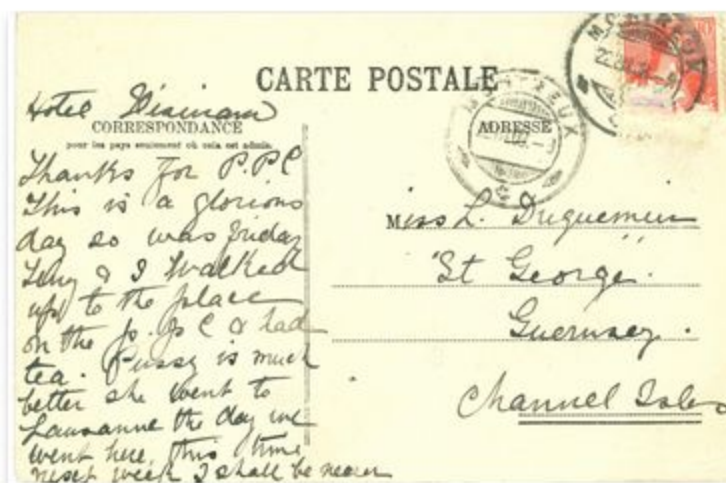 CARTE POSTALE
Hotel
CORRESPONDANCE
pour les pays seulement où cela est admis.
ADRESSE
MONTREUX
MONTREUX
Thanks for P.P.C
This is a glorious
day so was Friday
& I walked
up to the place
on the p.p.c & had
tea. Pussy is much
better she went to
Lausanne the day we
went here, this time
next week I shall be nearer
Miss L. Duquemin
"St George"
Guernsey.
Channel Isles